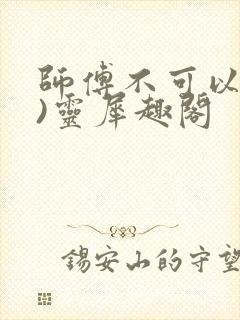 師傅不可以
)靈犀趣閣
錫安山的守望